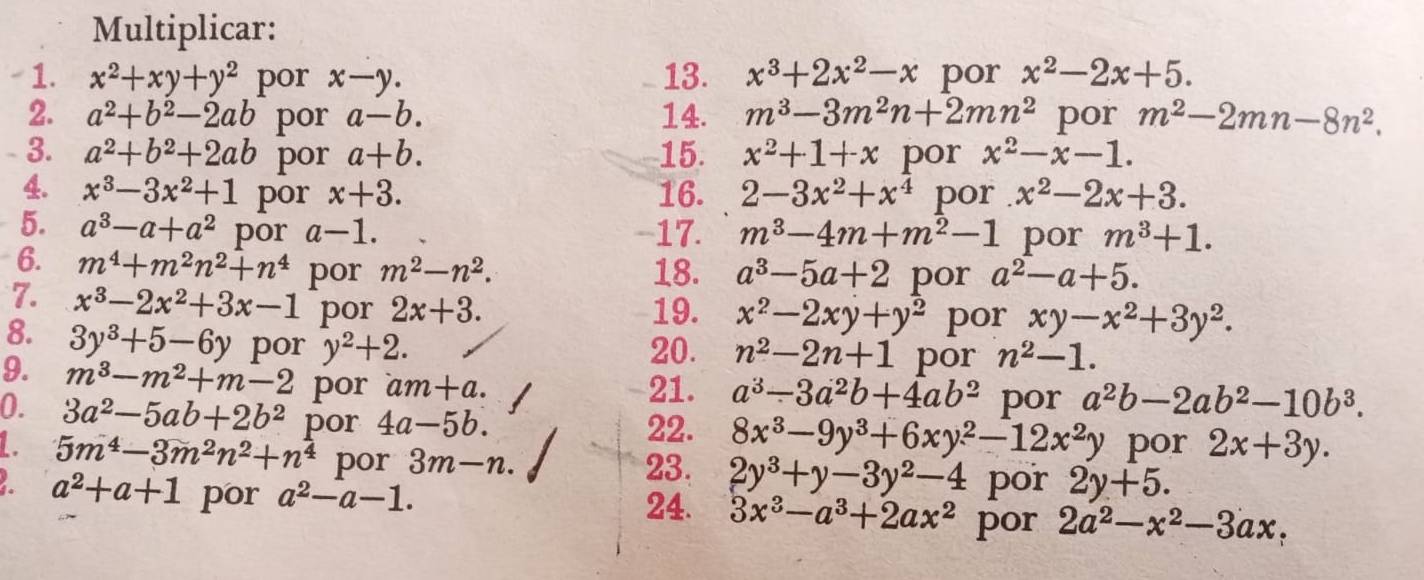 Multiplicar:
1. x²+xy+y² por x—y.
2. a²+b²—2ab por a—b.
3. a²+b²+2ab por a+b.
4. x³—3x²+1 por x+3.
5. a³—a+a² por a—1.
6. m⁴+m²n²+n⁴ por m²—n².
7. x³—2x²+3x—1 por 2x+3.
8. 3y³+5—6y por y²+2.
9. m³—m²+m—2 por am+a.
0. 3a²—5ab+2b² por 4a—5b.
1. 5m⁴—3m²n²+n⁴ por 3m—n.
2. a²+a+1 por a²—a—1.
13. x³+2x²—x por x²—2x+5.
14. m³—3m²n+2mn² por m²—2mn—8n².
15. x²+1+x por x²—x—1.
16. 2—3x²+x⁴ por x²—2x+3.
17. m³—4m+m²—1 por m³+1.
18. a³—5a+2 por a²—a+5.
19. x²—2xy+y² por xy—x²+3y².
20. n²—2n+1 por n²—1.
21. a³—3a²b+4ab² por a²b—2ab²—10b³.
22. 8x³—9y³+6xy²—12x²y por 2x+3y.
23. 2y³+y—3y²—4 por 2y+5.
24. 3x³—a³+2ax² por 2a²—x²—3ax.